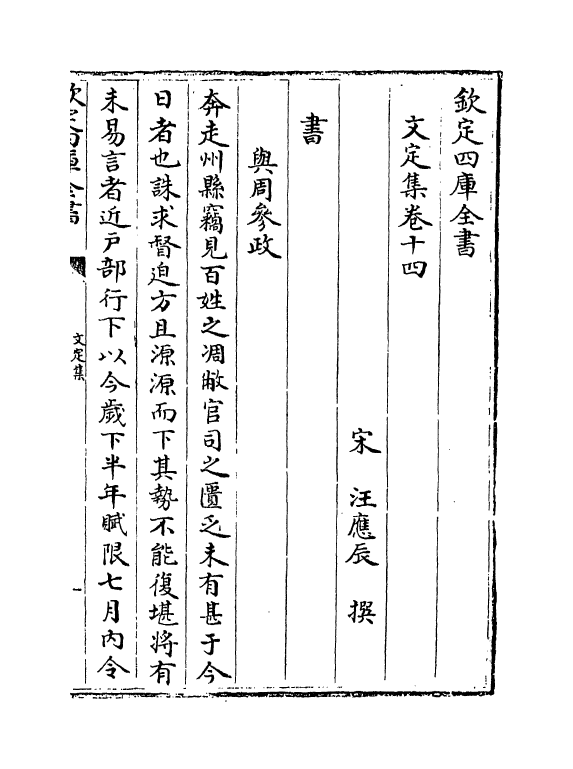 欽定四庫全書
文定集卷十四
宋 汪應辰 撰
書
與周參政
奔走州縣竊見百姓之凋敝官司之匱乏未有甚于今
日者也誅求督迫方且源源而下其勢不能復堪將有
未易言者近戸部行下以今歲下半年賦限七月内令
欽定四庫全書
文定集
一